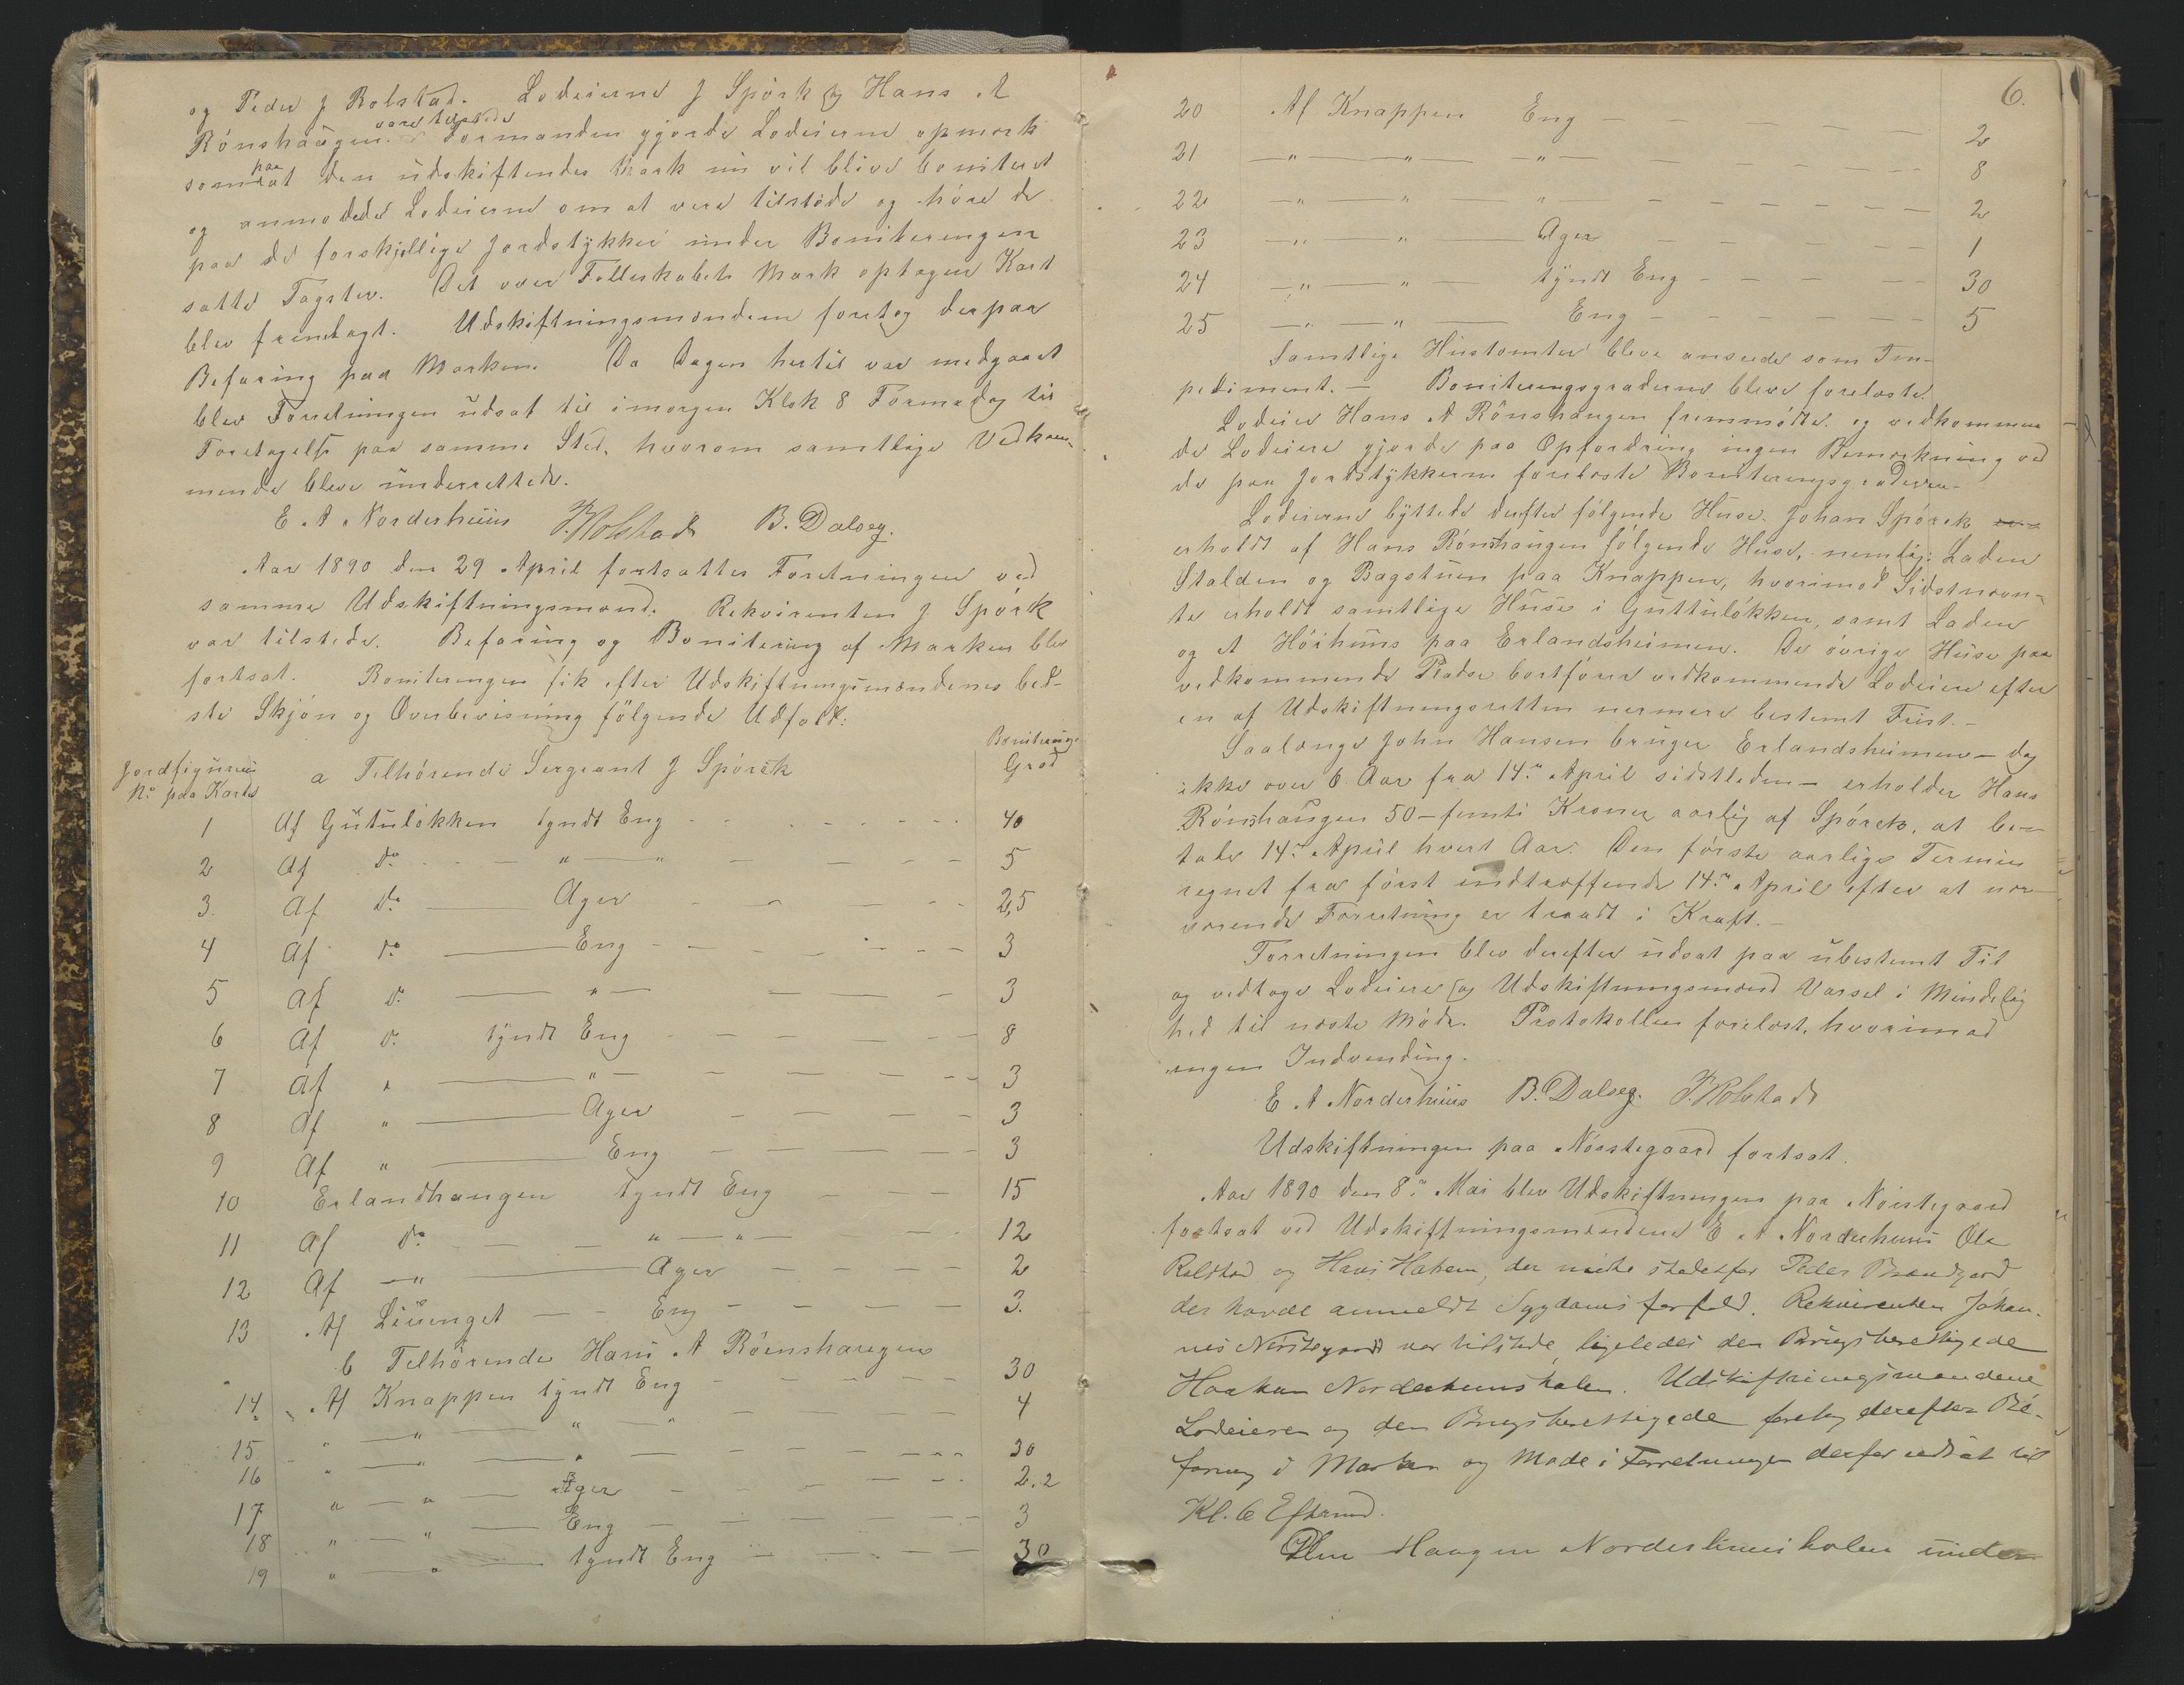 og Peder J Bolstad. Lodeierne J Spörk og Hans A
Rönshaugen vare tilstede Formanden gjorde Lodeierne opmerk
som paa at den udskiftendes Mark nu vil blive boniteret
og anmodede Lodeierne om at vere tilstede og höre de
paa de forskjellige Jordstykker under Boniteringen
satte Taxter. Det over Felleskabets Mark optagne Kart
blev fremlagt. Udskiftningsmendene foretog derpaa
Befaring paa Marken. Da Dagen hertil var medgaaet
blev Forretningen udsat til imorgen Klok 8 Formiddag til
Foretagelse paa samme Sted, hvorom samtlige Vedkom-
mende bleve underrettede.
E. A. Norderhuus J Bolstad B. Dalseg.
Aar 1890 den 29 April fortsattes Forretningen ved
samme Udskiftningsmend. Rekvirenten J Spörk
var tilstede. Befaring og Bonitering af Marken blev
fortsat. Boniteringen fik efter Udskiftningsmendenes bed-
ste Skjön og Overbevisning fölgende Udfald:
Jordfigurens No paa Kartet a Tilhörende Sergeant J Spörck Boniterings Grad
1 Af Gutulökken tyndt Eng - - - 40
2 Af do - " - " - - - 5
3. Af do - Ager - - - 2,5
4 Af do - Eng - - - 3
5 Af do - " - - - 3
6 Af do tyndt Eng - - - 8
7 Af " - " - - - 3
8 Af " - Ager - - - 3
9 Af " - Eng - - - 3
10 Erlandhaugen tyndt Eng - - - 15
11 Af do - - " - " - - 12
12 Af - " - Ager - - - 2
13 Af Liuenget - - Eng - - - 3.
b Tilhörende Hans A Rönshaugen
14. Af Knappen tyndt Eng - - - 30
15 " - " - " - " - - - 4
16 " - " - " - - - 30
17 " - " - Ager - - - 2.2
18 " - " - Eng - - - 3
19 " - " - tyndt Eng - - - 30
6.
20 Af Knappen Eng - - - 2
21 - " - " - " - - - 8
22 - " - " - " - - - 2
23 - " - " - Ager - - - 1
24 - " - " - tyndt Eng - - - 30
25 - " - " - Eng - - - 5
Samtlige Hustomter bleve ansede som Im-
pediment. - Boniteringsgraderne bleve foreleste.
Lodeier Hans A Rönshaugen fremmödte. og vedkommen
de Lodeiere gjorde paa Opfordring ingen Bemerkning ved
de paa Jordstykkerne foreleste Boniteringsgraderne.
Lodeierne byttede derefter fölgende Huse. Johan Spörck
erholdt af Hans Rönshaugen fölgende Huse, nemlig: Laden
Stalden og Bagstuen paa Knappen, hvorimod Sidstnevn-
te erholdt samtlige Huse i Guttulökken, samt Laden
og et Höihuus paa Erlandsheimen. De övrige Huse paa
vedkommende Pladse bortförer vedkommende Lodeiere efter
en af Udskiftningsretten nermere bestemt Frist. -
Saalenge John Hansen bruger Erlandsheimen - dog
ikke over 6 Aar fra 14de April sidstleden - erholder Hans
Rönshaugen 50 - femti Kroner aarlig af Spörck, at be-
tale 14de April hvert Aar. Den förste aarlige Termin
regnet fra först indtreffende 14de April efter at ner-
verende Forretning er traadt i Kraft. -
Forretningen blev derefter udsat paa ubestemt Tid
og vedtoge Lodeiere og Udskiftningsmend Varsel i Mindelig
hed til neste Möde. Protokollen forelest, hvorimod
ingen Indvending.
E. A Norderhuus B. Dalseg. J. Bolstad
Udskiftningen paa Nörstegaard fortsat.
Aar 1890 den 8de Mai blev Udskiftningen paa Nörstegaard
fortsat ved Udskiftningsmendene E A Norderhuus Ole
Ralstad og Hans Haken, der mödte istedetfor Peder Brandgard
der havde anmeldt Sygdoms forfald. Rekvirenten Johan-
nes Nörstegaard var tilstede, ligeledes den Brugsberettigede
Haakan Norderhuusholen. Udskiftningsmendene
Lodeieren og den Brugsberettigede foretog derefter Be-
faring i Marken og Möde i Forretningen derfor udsat til
Kl. 6 Efterm.
Haagen Norderhuusholen under